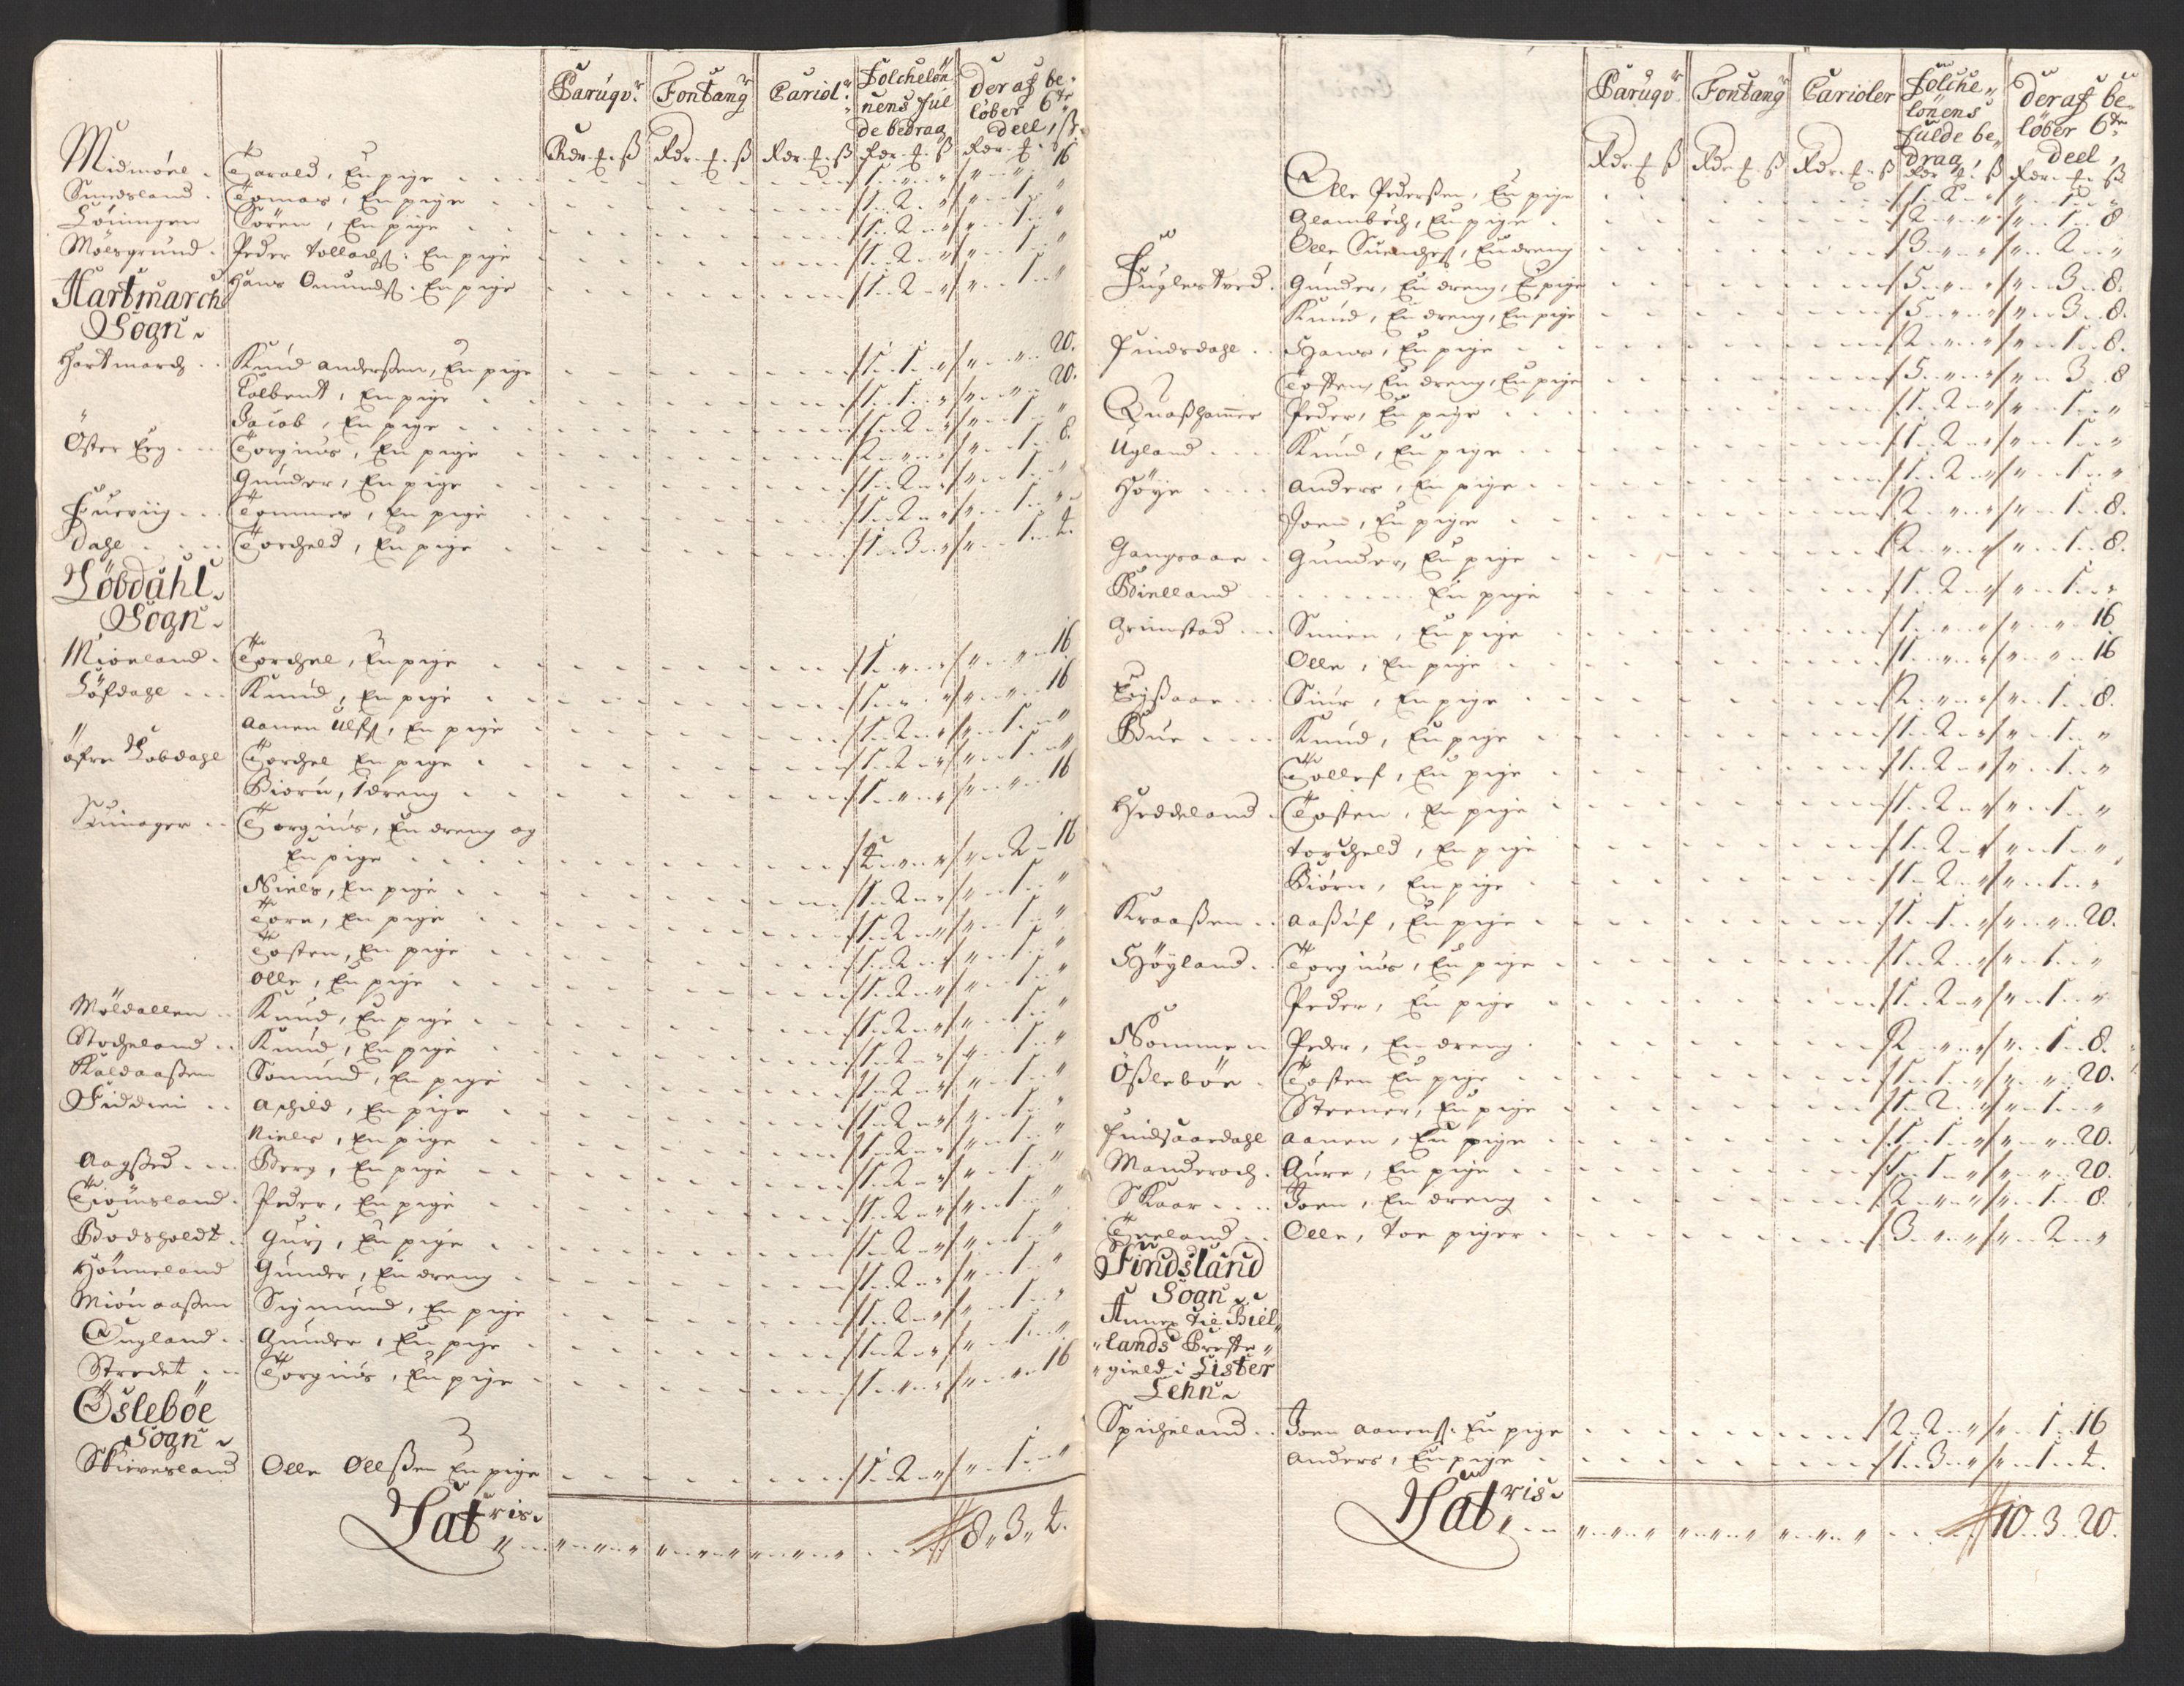 Parúqvr. Fontangr Cariolr. Folchelön nens fúl de bedrag deraf be löber 6te deel, ß
Rdr. f. ß Rdr. f. ß Rdr. f. ß Rdr. f. ß Rdr. f. ß
Midmöel . Tarald, En pige 1 " " " " 16
Sundsland . Tomas, En pige 1 2 " " 1 "
Löningen Sören, En pige 1 2 " " 1 "
Mölsgrund . Peder tollachs. En pige 1 2 " " 1 "
Hans Omunds. En pige 1 2 " " 1 "
Hartmarch
Sogn
Hartmarch . . Knud andersen, En pige 1 1 " " " 20.
Colbent, En pige 1 1 " " " 20.
Jacob, En pige 1 2 " " 1 "
Öster Erg . . . Torgius, En pige 2 " " " 1 8.
Gunder, En pige 1 2 " " 1 "
Fuerviig . . . Tommes, En pige 1 2 " " 1 "
Dahl . . . . Torcheld, En pige 1 3 " " 1 4.
Löbdahl
Sogn
Mioeland . Torchel, En pige 1 " " " " 16
Löfdahl . . . Knud, En pige 1 " " " " 16
aanen Ulfs, En pige 1 2 " " 1 "
öfre Lobdahl Torchel En pige 1 2 " " 1 "
Biørn, 1 dreng 1 " " " " 16
Torgius, En dreng og
En pige 4 " " " 2 16
Niels, En pige 1 2 " " 1 "
Tore, En pige 1 2 " " 1 "
Tosten, En pige 1 2 " " 1 "
Olle, En pige 1 2 " " 1 "
Möldallen . . Knud, En pige 1 2 " " 1 "
Stocheland . . Knud, En pige 1 2 " " 1 "
Kaldaassen Somund, En pige 1 2 " " 1 "
Fiddien . . Achild, En pige 1 2 " " 1 "
Niels, En pige 1 2 " " 1 "
Aagsted . . . Berg, En pige 1 2 " " 1 "
Tiönsland . Peder, En pige 1 2 " " 1 "
Bodsholdt . Guri, En pige 1 2 " " 1 "
Hönneland Gunder, En dreng 1 2 " " 1 "
Miönaassen Sigmund, En pige 1 2 " " 1 "
Øugland . . Gunder, En pige 1 2 " " 1 "
Strædet . . . Torgius, En pige 1 " " " " 16
Øslebøe
Sogn
Skievesland Olle Ollsen En pige 1 2 " " 1 "
Latris " " " " " " " " " 8 " 3 " 4.
Parúqvr Fontangr Carioler Folche lönens fúlde be drag, deraf be löber 6te deel,
Rdr. f. ß Rdr. f. ß Rdr. f. ß Rdr. f. ß Rdr. f. ß
Olle Pedersen, En pige 1 2 " " 1 "
Glambech, En pige 2 " " " 1 8
Olle Suends., En dreng 3 " " " 2 "
Fuglestved . Gunder, En dreng, En pige 5 " " " 3 8.
Knud, En dreng, En pige 5 " " " 3 8.
Findsdahl . . Hans, En pige 2 " " " 1 8.
Tosten, En dreng, En pige 5 " " " 3 8
Quashammer Peder, En pige 1 2 " " 1 "
Ugland . . . Knud, En pige 1 2 " " 1 "
Høye . . . . Anders, En pige 1 2 " " 1 "
Joen, En pige 2 " " " 1 8.
Gangsaae . Gunder, En pige 2 " " " 1 8.
Bielland . . . . . . . . En pige 1 2 " " 1 "
Grimstad . . Simen, En pige 1 " " " " 16
Olle, En pige 1 " " " " 16
Siur, En pige 2 " " " 1 8.
Bue . . . . Knud, En pige 1 2 " " 1 "
Tollef, En pige 1 2 " " 1 "
Heddeland . Tosten, En pige 1 2 " " 1 "
torcheld, En pige 1 2 " " 1 "
Biørn, En pige 1 2 " " 1 "
Kraassen . . aasuf, En pige 1 1 " " " 20.
Høyland . Torgius, En pige 1 2 " " 1 "
Peder, En pige 1 2 " " 1 "
Nomme . . Peder, En dreng 2 " " " 1 8.
Øslebøe . Tosten En pige 1 1 " " " 20.
Steener, En pige 1 2 " " 1 "
Findsaardahl aanen, En pige 1 1 " " " 20.
Manderoch . Gure, En pige 1 1 " " " 20.
Skaar . . . . Joen, En dreng 2 " " " 1 8.
Olle, toe piger 3 " " " 2 "
Findsland
Sogn
Annex til Biel
lands Preste
gield i Lister
Lehn
Spicheland . . Joen aanens. En pige 2 2 " " 1 16
Anders, En pige 1 3 " " 1 4.
Latris " " " " " " " " " 10 3 20.